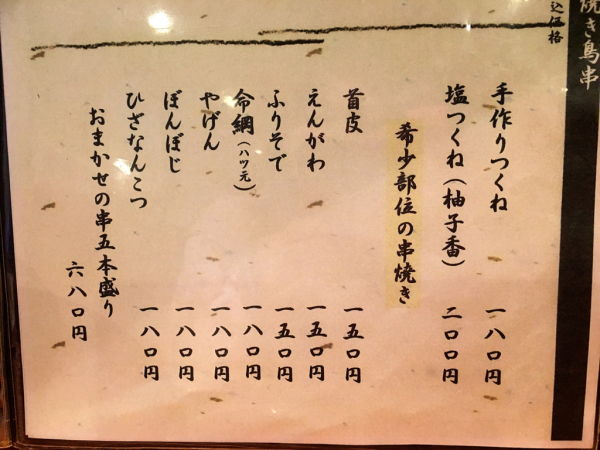 焼き鳥串
込価格
手作りつくね 一八〇円
塩つくね(柚子香) 二〇〇円
希少部位の串焼き
首皮 一五〇円
えんがわ 一五〇円
ふりそで 一五〇円
命綱(ハツ元) 一八〇円
やげん 一八〇円
ぼんぼじ 一八〇円
ひざなんこつ 一八〇円
おまかせの串五本盛り
六八〇円